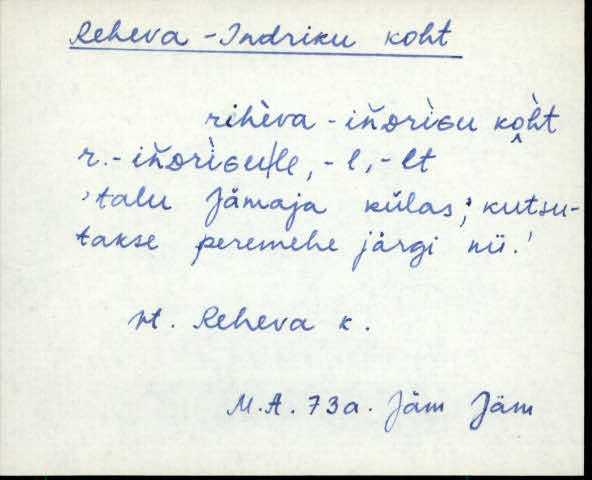 Reheva - Indriku koht
rihèva - iňᴅrìɢu ko̭h̀t
r. - iňᴅrìɢu/lle, -l, -lt
'talu Jämaja külas; kutsu-
takse peremehe järgi nii.'
vt. Reheva k.
M.A. 73a. Jäm Jäm